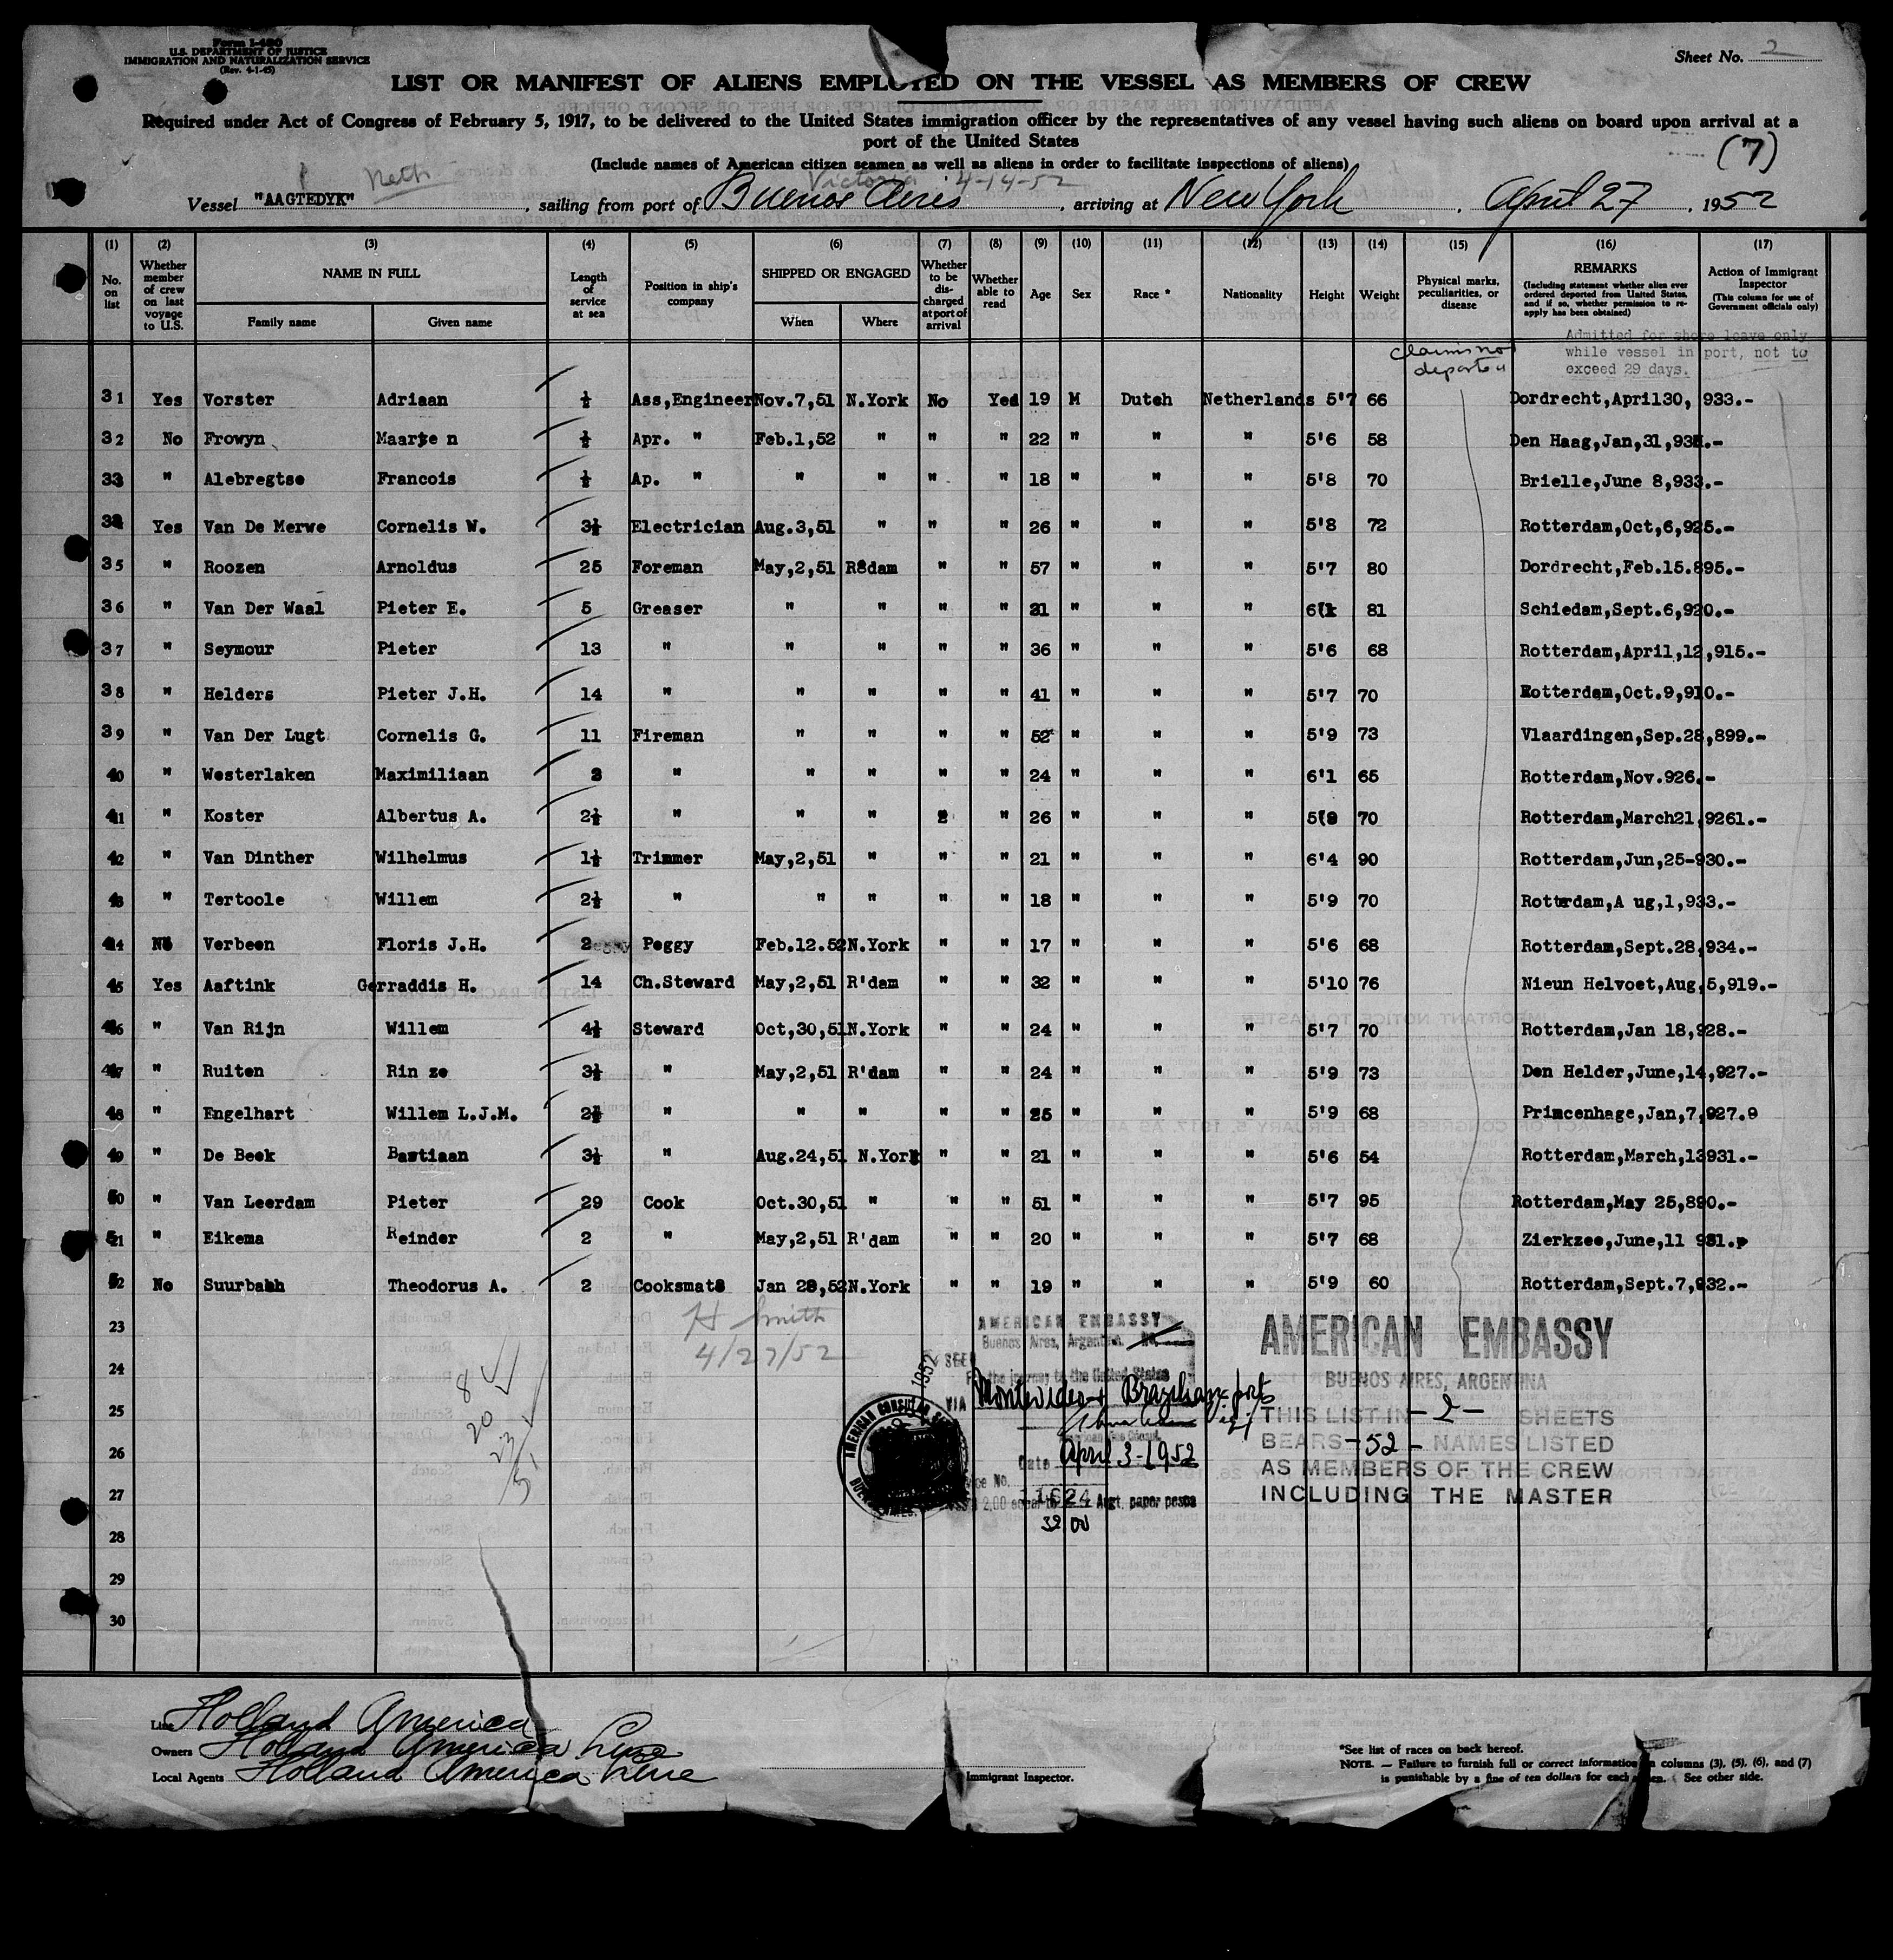 Form I-480
U.S. DEPARTMENT OF JUSTICE
IMMIGRATION AND NATURALIZATION SERVICE
(Rev. 4-1-45)
Sheet No. 2
LIST OR MANIFEST OF ALIENS EMPLOYED ON THE VESSEL AS MEMBERS OF CREW
Required under Act of Congress of February 5, 1917, to be delivered to the United States immigration officer by the representatives of any vessel having such aliens on board upon arrival at a
port of the United States
(7)
(Include names of American citizen seamen as well as aliens in order to facilitate inspections of aliens)
Neth Victoria 4-14-52
Vessel "AAGTEDYK", sailing from port of Buenos Aires, arriving at New York, April 27, 1952
(1) (2) (3) (4) (5) (6) (7) (8) (9) (10) (11) (12) (13) (14) (15) (16) (17)
No. on list
Whether member of crew on last voyage to U.S.
NAME IN FULL
Family name Given name
Length of service at sea
Position in ship's company
SHIPPED OR ENGAGED
When Where
Whether to be discharged at port of arrival
Whether able to read
Age
Sex
Race *
Nationality
Height
Weight
Physical marks, peculiarities, or disease
REMARKS
(Including statement whether alien ever ordered deported from United States, and if so, whether permission to reapply has been obtained)
Action of Immigrant Inspector
(This column for use of Government officials only)
claims not deported
Admitted for shore leave only
while vessel in port, not to
exceed 29 days.
31 Yes Vorster Adriaan ½ Ass,Engineer Nov.7,51 N.York No Yes 19 M Dutch Netherlands 5'7 66 Dordrecht,April30, 933.-
32 No Frowyn Maarten ½ Apr. " Feb.1,52 " " " 22 " " " 5'6 58 Den Haag,Jan,31,93.-
33 " Alebregtse Francois ½ Ap. " " " " " 18 " " " 5'8 70 Brielle,June 8,933.-
34 Yes Van De Merwe Cornelis W. 3½ Electrician Aug.3,51 " " " 26 " " " 5'8 72 Rotterdam,Oct,6,925.-
35 " Roozen Arnoldus 25 Foreman May,2,51 R'dam " " 57 " " " 5'7 80 Dordrecht,Feb.15.895.-
36 " Van Der Waal Pieter E. 5 Greaser " " " " 31 " " " 6'1 81 Schiedam,Sept.6,920.-
37 " Seymour Pieter 13 " " " " " 36 " " " 5'6 68 Rotterdam,April,12,915.-
38 " Helders Pieter J.H. 14 " " " " " 41 " " " 5'7 70 Rotterdam,Oct.9,910.-
39 " Van Der Lugt Cornelis G. 11 Fireman " " " " 52 " " " 5'9 73 Vlaardingen,Sep.28,899.-
40 " Westerlaken Maximiliaan 2 " " " " " 24 " " " 6'1 65 Rotterdam,Nov.926.-
41 " Koster Albertus A. 2½ " " " " " 26 " " " 5'9 70 Rotterdam,March21,9261.-
42 " Van Dinther Wilhelmus 1½ Trimmer May,2,51 " " " 21 " " " 6'4 90 Rotterdam,Jun,25-930.-
43 " Tertoole Willem 2½ " " " " " 18 " " " 5'9 70 Rotterdam,A ug,1,933.-
44 No Verbeen Floris J.H. 2 Peggy Feb.12.52 N.York " " 17 " " " 5'6 68 Rotterdam,Sept.28,934.-
45 Yes Aaftink Gerraddis H. 14 Ch.Steward May,2,51 R'dam " " 32 " " " 5'10 76 Nieun Helvoet,Aug,5,919.-
46 " Van Rijn Willem 4½ Steward Oct,30,51 N.York " " 24 " " " 5'7 70 Rotterdam,Jan 18,928.-
47 " Ruiten Rin ze 3½ " May,2,51 R'dam " " 24 " " " 5'9 73 Den Helder,June,14,927.-
48 " Engelhart Willem L.J.M. 2½ " " " " " 25 " " " 5'9 68 Princenhage,Jan,7,927.9
49 " De Beek Bastiaan 3½ " Aug.24,51 N.York " " 21 " " " 5'6 54 Rotterdam,March,13931.-
50 " Van Leerdam Pieter 29 Cook Oct.30,51 " " " 51 " " " 5'7 95 Rotterdam,May 25,890.-
51 " Eikema Reinder 2 " May,2,51 R'dam " " 20 " " " 5'7 68 Zierkzee,June,11 931.
52 No Suurbahh Theodorus A. 2 Cooksmate Jan 28,52 N.York " " 19 " " " 5'9 60 Rotterdam,Sept.7,932.-
23
24
25
26
27
28
29
30
H Smith
4/27/52
8
20
23
51
AMERICAN EMBASSY
Buenos Aires, Argentina.
SEEN
For the journey to the United States
VIA Montevideo + Brazilian ports
Date April 3-1952
Service No. 11624
2,00 equal to Argt. paper pesos
32 00
AMERICAN CONSULAR SERVICE
BUENOS AIRES
1952
AMERICAN EMBASSY
BUENOS AIRES, ARGENTINA
THIS LIST IN -2- SHEETS
BEARS -52- NAMES LISTED
AS MEMBERS OF THE CREW
INCLUDING THE MASTER
Line Holland America
Owners Holland America Line
Local Agents Holland America Line
Immigrant Inspector.
*See list of races on back hereof.
NOTE. — Failure to furnish full or correct information in columns (3), (5), (6), and (7)
is punishable by a fine of ten dollars for each alien. See other side.